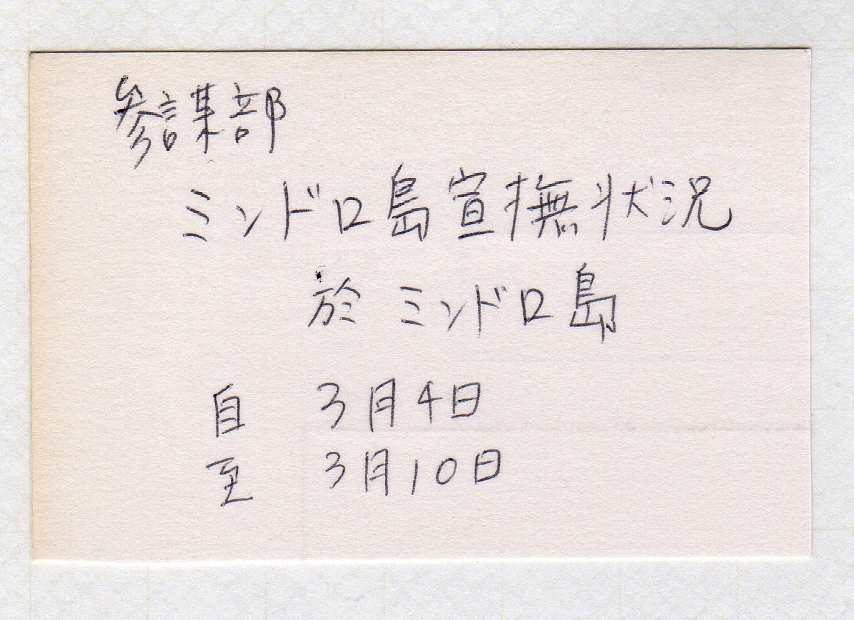 参謀部
ミンドロ島宣撫状況
於 ミンドロ島
自 3月4日
至 3月10日